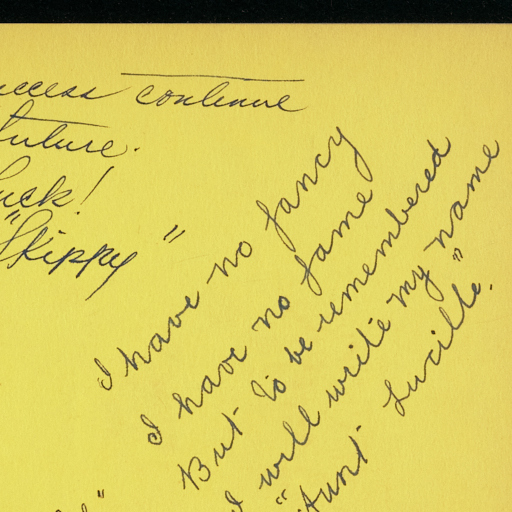 continue
future.
Luck!
"Skippy"
I have no fancy
I have no fame
But to be remembered
I will write my name
"Aunt Lucille."